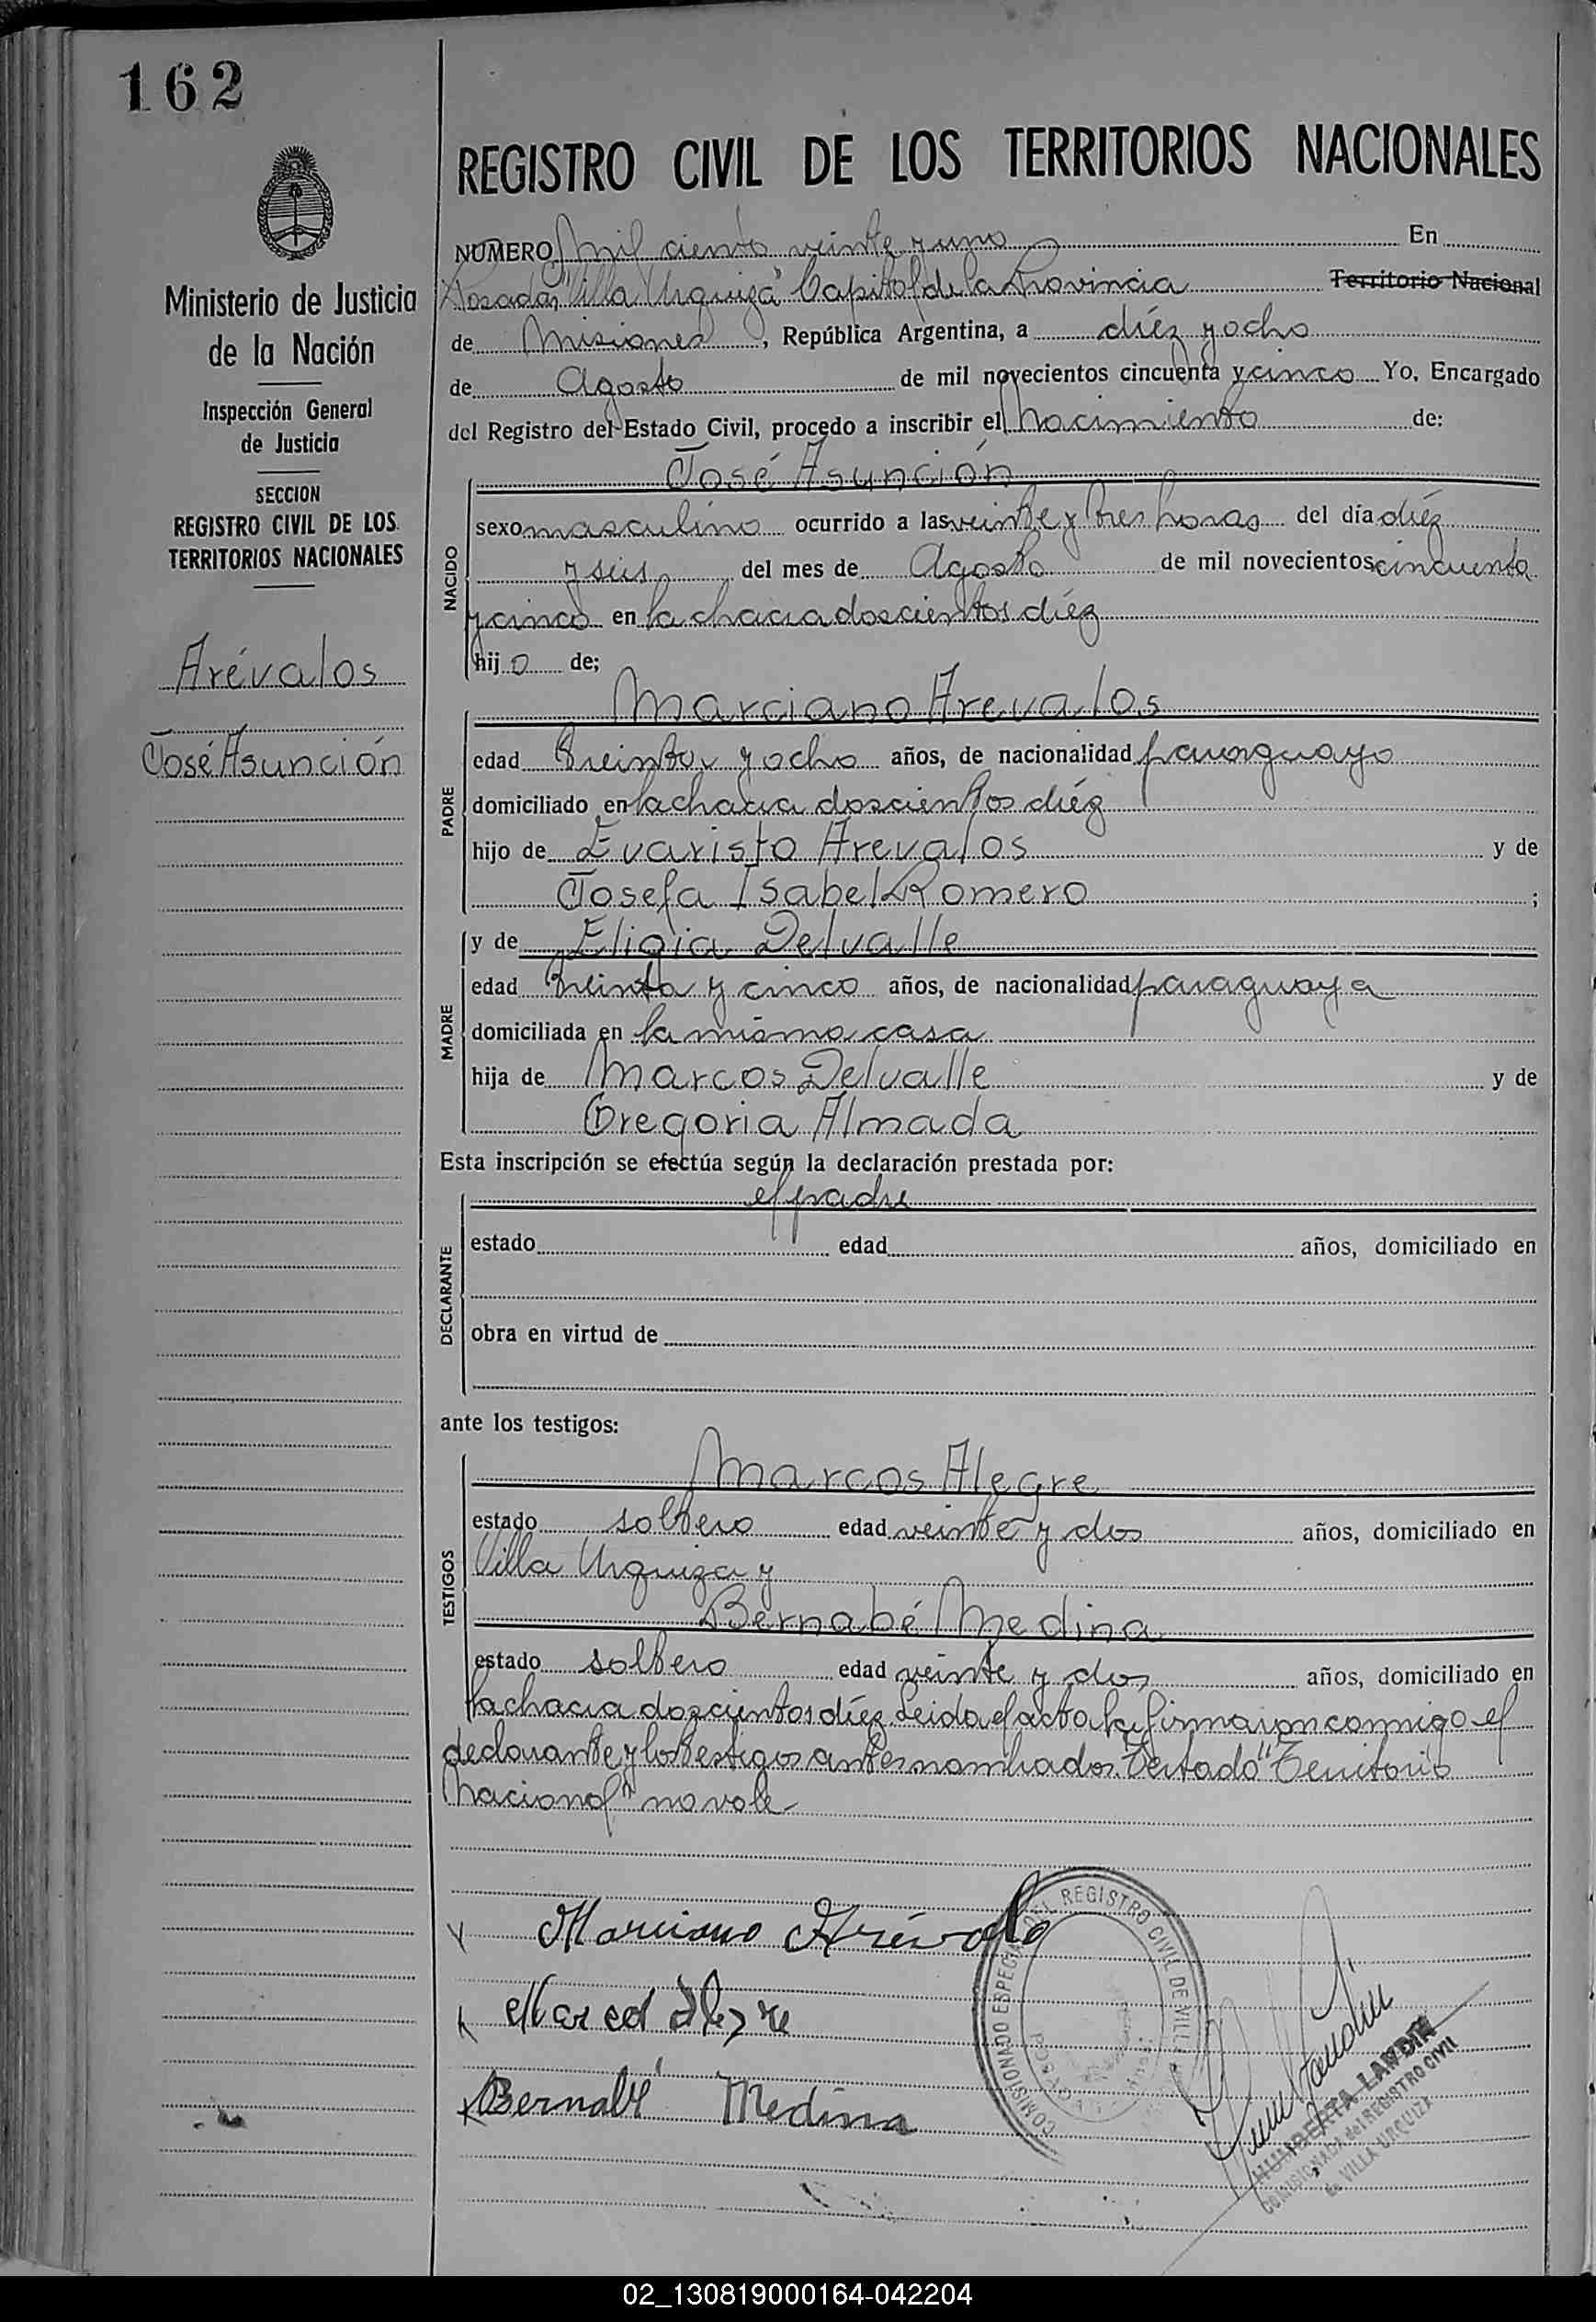 162
Ministerio de Justicia
de la Nación
Inspección General
de Justicia
SECCION
REGISTRO CIVIL DE LOS
TERRITORIOS NACIONALES
Arévalos
José Asunción
REGISTRO CIVIL DE LOS TERRITORIOS NACIONALES
NUMERO Mil ciento veinte y uno En
Posadas, "Villa Urquiza" Capital de la Provincia Territorio Nacional
de Misiones, República Argentina, a diéz y ocho
de Agosto de mil novecientos cincuenta y cinco Yo, Encargado
del Registro del Estado Civil, procedo a inscribir el Nacimiento de:
José Asunción
NACIDO
sexo masculino ocurrido a las veinte y tres horas del día diéz
y seis del mes de Agosto de mil novecientos cincuenta
y cinco en la chacra doscientos diéz
hijo de;
Marciano Arevalos
PADRE
edad treinta y ocho años, de nacionalidad paraguayo
domiciliado en la chacra doscientos diéz
hijo de Evaristo Arevalos y de
Josefa Isabel Romero ;
y de Eligia Delvalle
MADRE
edad treinta y cinco años, de nacionalidad paraguaya
domiciliada en la misma casa
hija de Marcos Delvalle y de
Gregoria Almada
Esta inscripción se efectúa según la declaración prestada por:
el padre
DECLARANTE
estado edad años, domiciliado en
obra en virtud de
ante los testigos:
Marcos Alegre
TESTIGOS
estado soltero edad veinte y dos años, domiciliado en
Villa Urquiza y
Bernabé Medina
estado soltero edad veinte y dos años, domiciliado en
la chacra doscientos diéz. Leida el acta la firmaron conmigo el
declarante y los testigos antes nombrados. Testado "Territorio
Nacional" no vale
x Marciano Arévalo
x Marcos Alegre
x Bernabé Medina
COMISIONADO ESPECIAL DEL REGISTRO CIVIL DE VILLA
HUMBERTA LANDIN
COMISIONADA del REGISTRO CIVIL
de VILLA URQUIZA
02_130819000164-042204